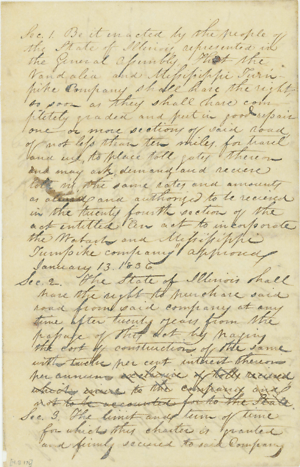 Sec. 1. Be it enacted by the people of
the State of Illinois represented in
the General Assembly, That the
Vandalia and Mississippi Turn-
pike Company shall have the right
so soon as they shall have com
pletely graded and put in good repair
one or more sections of said road
of not less than ten miles for travel
and use, to place toll gates thereon
and may ask demand and receive
toll in the same rates and amounts
as and authorized to be received
in the twenty fourth section of the
act entitled An act to incorporate
the Wabash and Mississippi
Turnpike company approved
January 13. 1836
Sec. 2. The State of Illinois shall
have the right to purchase said
road from said company at any
time after twenty years from the
passage of this act by paying
the cost of construction of the same
with twelve per cent interest thereon
per annum of tolls received
which to the company and
not to be accounted for to the State
Sec 3. The limit and term of time
for which this charter is granted
and firmly secured to said Company